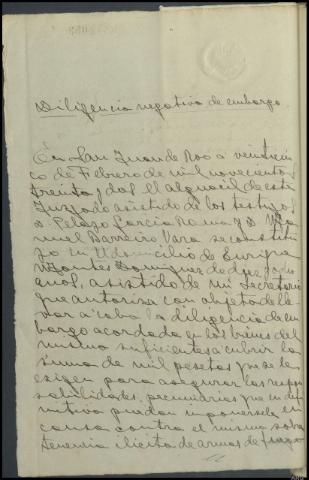 Diligencia negativa de embargo.
En San Juan de Roo a veinticin
co de Febrero de mil novecientos
treinta y dos. El alguacil de este
Juzgado asistido de los testigos
D. Pelayo Garcia Ramo y D. Ma
nuel Barreiro Vara se constitu
yo en el domicilio de
Montes Dominguez de
años, asistido de mi Secretario
que autoriza con objeto de lle
var a cabo la diligencia de em
bargo acordada en los bienes del
mismo suficientes a cubrir la
suma de mil pesetas que se le
exigen para asegurar las respon
sabilidades pecuniarias que en de
finitiva puedan imponersele en
causa contra el mismo sobre
tenencia ilicita de armas de fuego